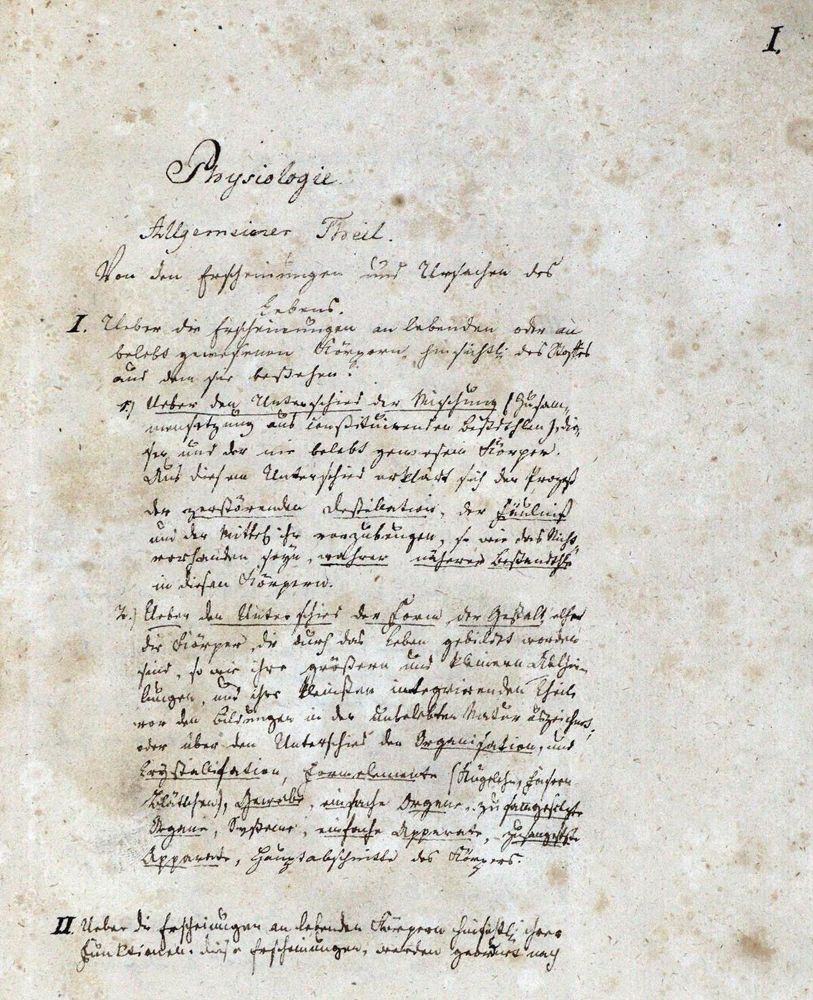 I.
Physiologie.
Allgemeiner Theil.
Von den Erscheinungen und Ursachen des
Lebens.
I. Ueber die Erscheinungen an lebenden oder an
belebt gewesenen Körpern, hinsichtl. des Stoffes
aus dem sie bestehen:
1.) Ueber den Unterschied der Mischung (Zusam-
mensetzung aus constituirenden Bestdthlen) die-
ser und der nie belebt gewesenen Körper.
Aus diesem Unterschied erklärt sich der Prozeß
der zerstörenden Destillation, der Fäulniß
und der Mittel ihr vorzubeugen, so wie das Nicht
vorhanden seyn, wahrer näherer Bestandthle
in diesen Körpern.
2.) Ueber den Unterschied der Form, der Gestalt
die Körper, die durch das Leben gebildet worden
sind, so wie ihre größern und kleinern Abthei-
lungen, und ihre kleinsten integrirenden Theile
vor den Bildungen in der unbelebten Natur auszeichnet,
oder über den Unterschied der Organisation, und
Crystallisation, Formelemente (Kügelchn, Fasern
Blättchen), Gewebe, einfache Organe, zusammengesetzte
Organe, Systeme, einfache Apparate, zusamgesetzte
Apparate, Hauptabschnitte des Körpers.
II. Ueber die Erscheinungen an lebenden Körpern hinsichtl. ihrer
Funktionen. Diese Erscheinungen, werden geordnet nach